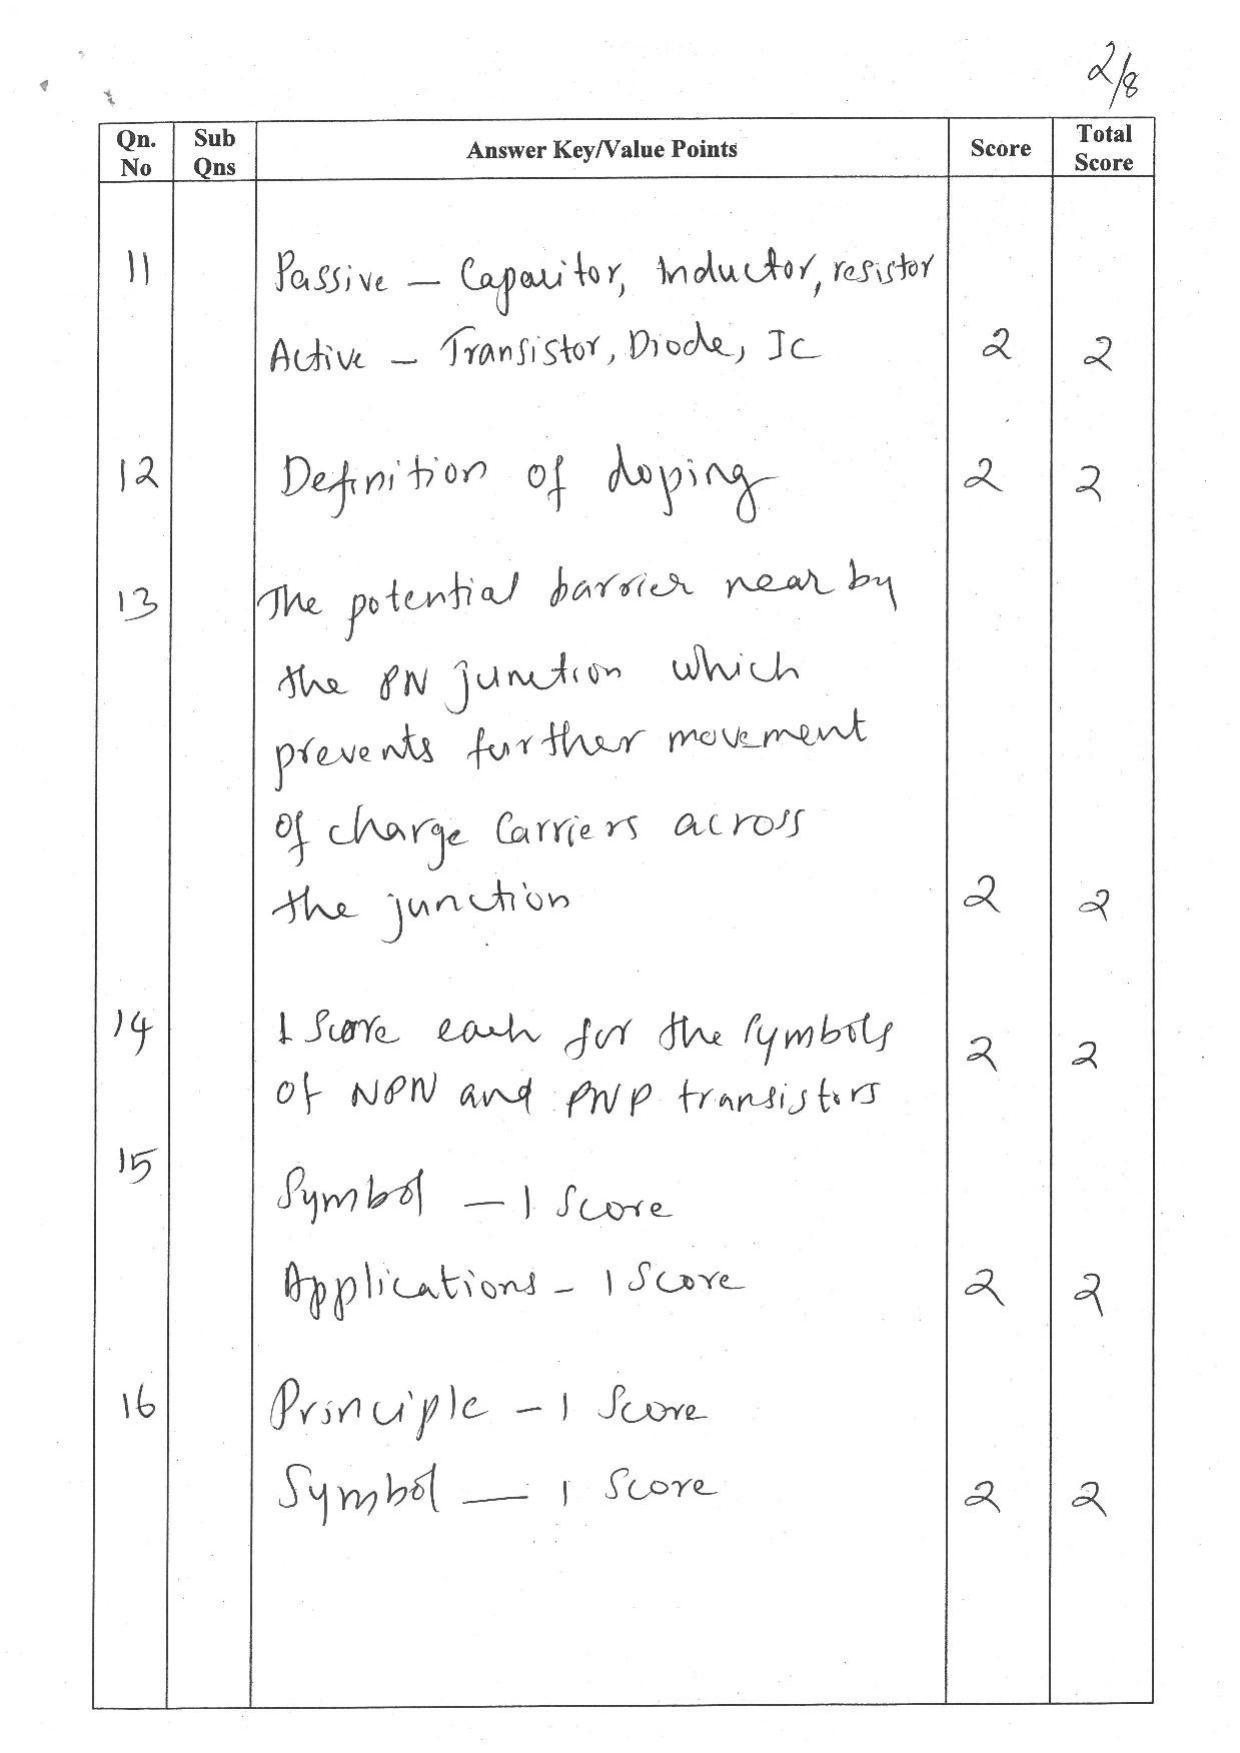 2/8
Qn. No Sub Qns Answer Key/Value Points Score Total Score
11 Passive – Capacitor, Inductor, resistor
Active – Transistor, Diode, IC 2 2
12 Definition of doping 2 2
13 The potential barrier near by
the PN junction which
prevents further movement
of charge carriers across
the junction 2 2
14 1 Score each for the symbols
of NPN and PNP transistors 2 2
15
Symbol – 1 Score
Applications – 1 Score 2 2
16 Principle – 1 Score
Symbol — 1 Score 2 2